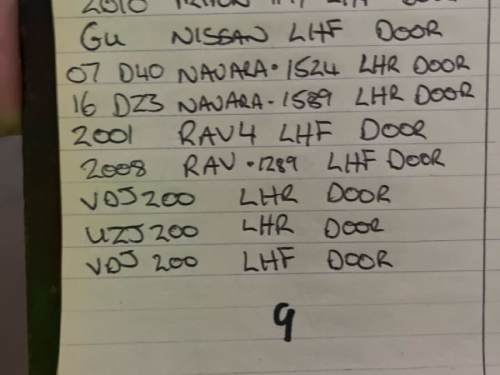 2010
GU NISSAN LHF DOOR
07 D40 NAVARA·1524 LHR DOOR
16 D23 NAVARA-1589 LHR DOOR
2001 RAV4 LHF DOOR
2008 RAV·1289 LHF DOOR
VDJ200 LHR DOOR
UZJ200 LHR DOOR
VDJ 200 LHF DOOR
9